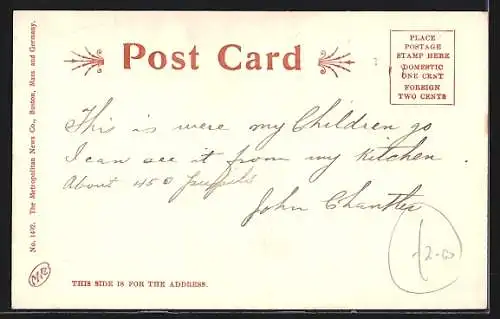 Post Card
PLACE
POSTAGE
STAMP HERE
DOMESTIC
ONE CENT
FOREIGN
TWO CENTS
This is were my Children go
I can see it from my Kitchen.
About 450 pupils
John
No. 1492. The Metropolitan News Co., Boston, Mass. and Germany.
THIS SIDE IS FOR THE ADDRESS.